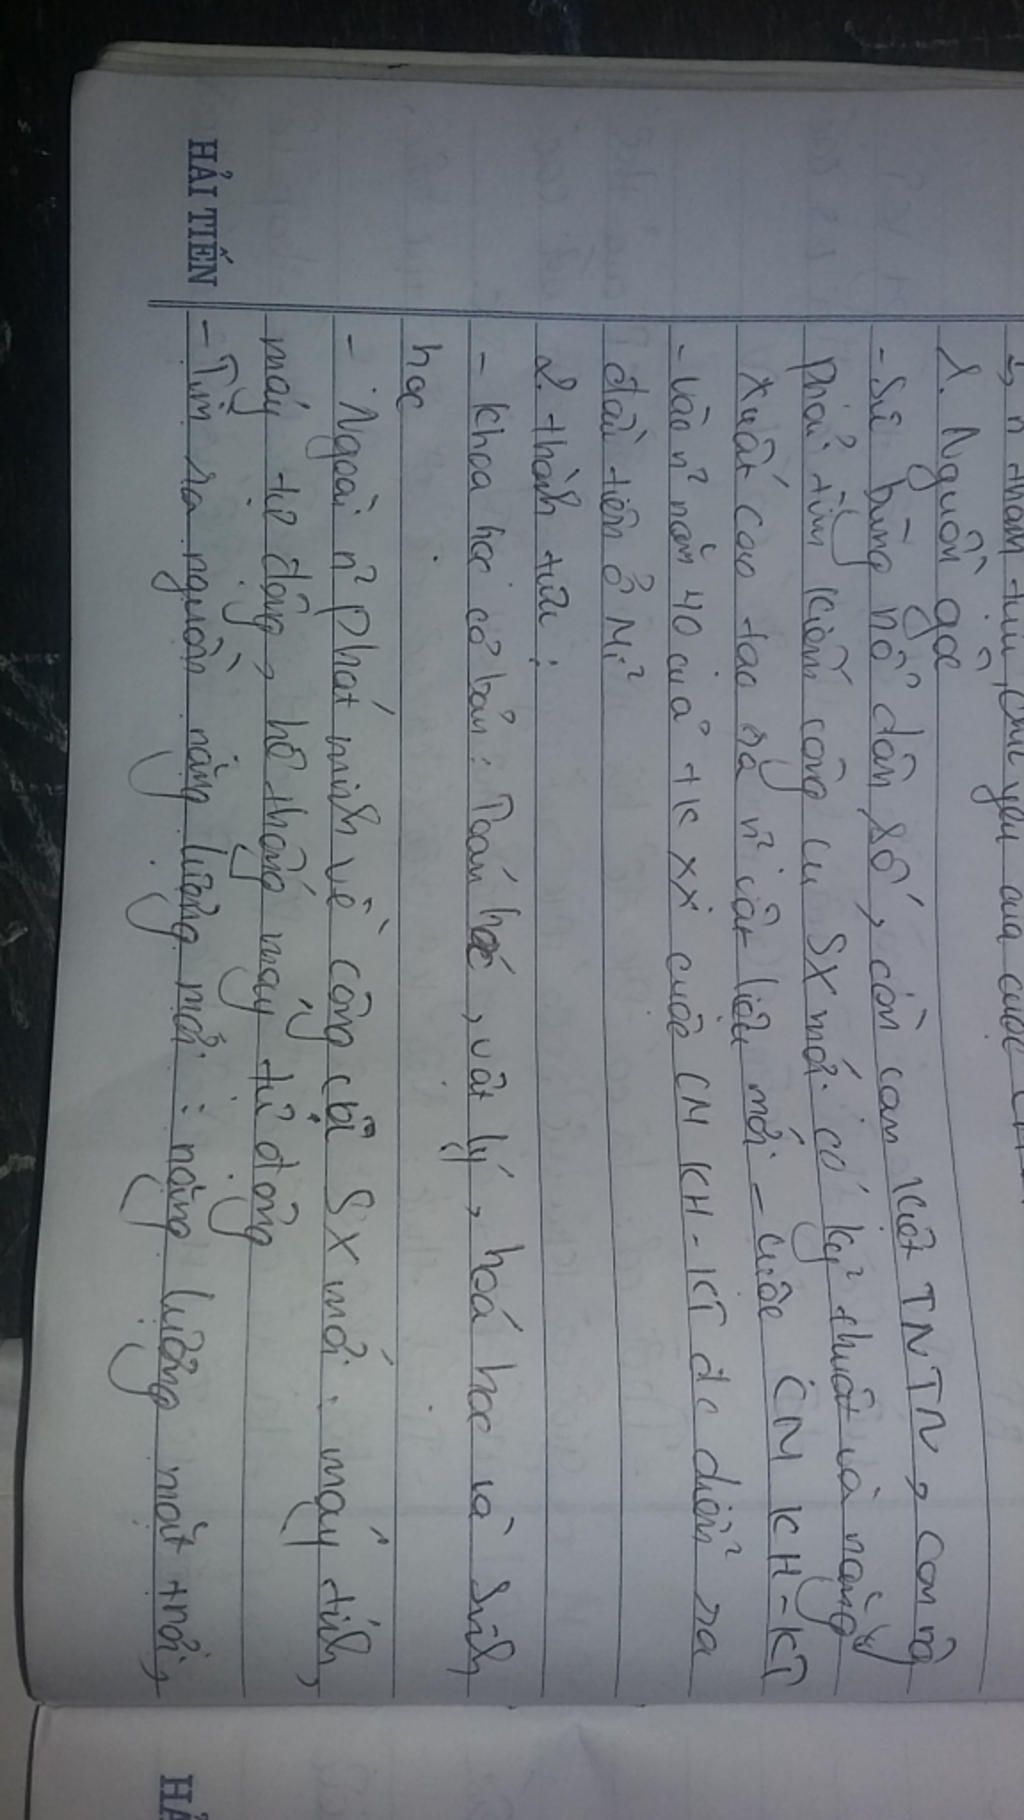 n thành tựu chủ yếu của cuộc
1. Nguồn gốc
- Sự bùng nổ dân số, còn cạn kiệt TNTN, con ng
phải tìm kiếm công cụ SX mới có kỹ thuật và năng
xuất cao tạo ra n² vật liệu mới - cuộc CM KH-KT
- Vào n² năm 40 của TK XX cuộc CM KH-KT đc diễn ra
đầu tiên ở Mĩ
2. thành tựu:
- Khoa học cơ bản: Toán học, vật lý, hoá học và sinh
học
- Ngoài n² phát minh về công cụ SX mới: máy tính,
máy tự động, hệ thống máy tự động
- Tìm ra nguồn năng lượng mới: năng lượng mặt trời,
HẢI TIẾN
HẢ